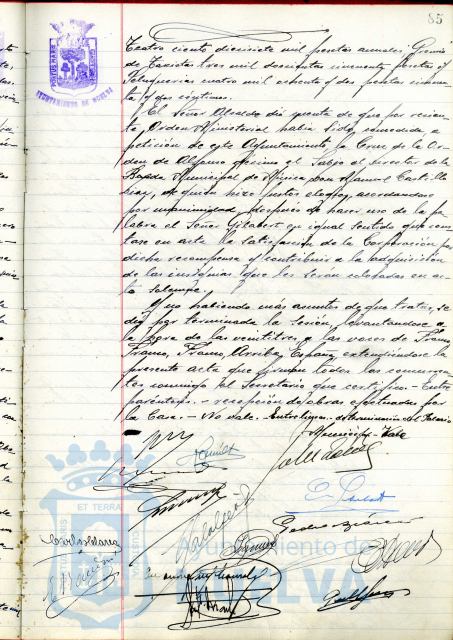 85
AYUNTAMIENTO DE HUELVA
Teatro ciento diecisiete mil pesetas anuales, Gremio
de Taxistas tres mil doscientas cincuenta pesetas y
Peluquerias cuatro mil ochenta y dos pesetas cincuen-
ta y dos céntimos.
El Señor Alcalde dió cuenta de que por recien-
te Orden Ministerial habia sido concedida, a
petición de este Ayuntamiento la Cruz de la Or-
den de Alfonso décimo el Sabio al Director de la
Banda Municipal de Música, Don Manuel Castillo
de quien hizo justos elogios, acordandose
por unanimidad, después de hacer uso de la pa-
labra el Señor Gilabert en igual sentido que cons-
tase en acta la satisfacción de la Corporación por
dicha recompensa y contribuir a la adquisición
de las insignias que les serán colocadas en ac-
to solemne.
Y no habiendo más asuntos de que tratar, se
dió por terminada la sesión, levantandose a
la hora de las veintitres a las voces de Franco,
Franco, Franco, Arriba España extendiendose la
presente acta que firman todos los concurren-
tes conmigo el Secretario que certifico.- Entre
parentesis.- recepción de obras efectuadas por
la Casa.- No vale.- Entre lineas.- determinación del Palacio
Municipal.- Vale
ET TERRA
Ayuntamiento de
HUELVA